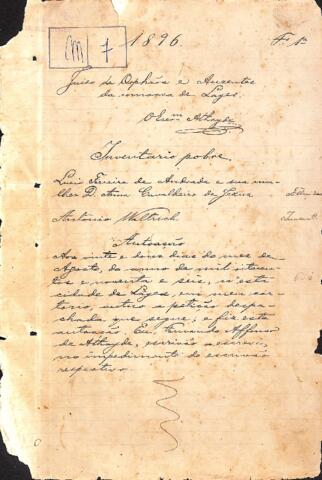 M 7
1896.
Fl. 1ª
Juizo de Orphãos e Auzentes
da comarca de Lages.
O Escrᵐ Athayde
Inventario pobre.
Luiz Pereira de Andrade e sua mu-
lher D. Anna de Jesus
Antonio Waltrick
Autoação
Aos vinte e dous dias do mez de
Agosto, do anno de mil oitocen-
tos e noventa e seis, n'esta
cidade de Lages, em meu car-
torio autuo a petição despa-
chada que segue; e fiz esta
autoação. Eu, Fernando Affonso
de Athayde, escrivão o escrevi,
no impedimento do escrivão
respectivo.